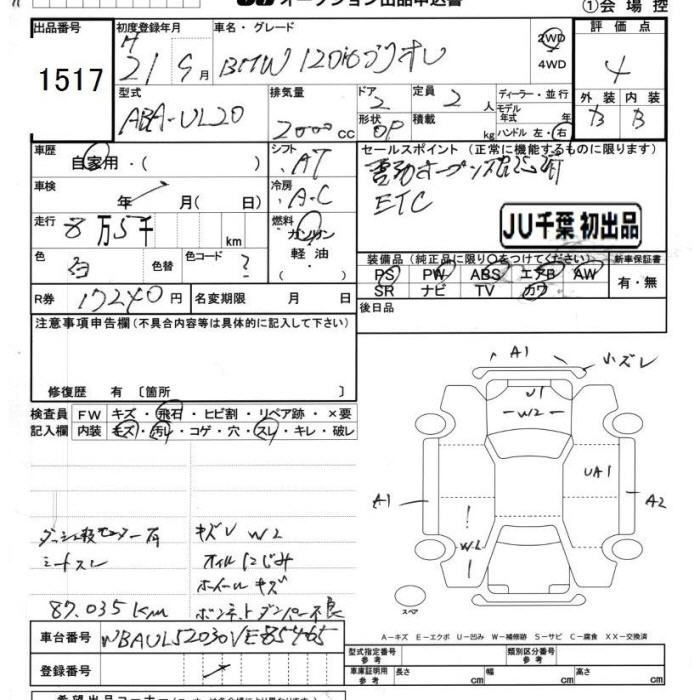 オークション出品申込書
①会場控
出品番号 初度登録年月 車名・グレード 評価点
1517
H 21 9月 BMW 120i カブリオレ 2WD 4WD 4
型式 排気量 ドア 定員 ディーラー・並行 外装 内装
ABA-UL20 2000cc 2 2人 モデル年式 年 B B
形状 OP 積載 kg ハンドル 左・右
車歴 自家用・( ) シフト AT セールスポイント(正常に機能するものに限ります)
車検 年 月( 日) 冷房 A-C
ETC
走行 8万5千 km 燃料 ガソリン 軽油 ・( )
JU千葉 初出品
色 白 色替 色コード ?
装備品(純正品に限り○をつけてください) 新車保証書
PS PW ABS エアB AW 有・無
SR ナビ TV カワ
R券 17240円 名変期限 月 日 後日品
注意事項申告欄(不具合内容等は具体的に記入して下さい)
修復歴 有〔箇所 〕
検査員記入欄 FW キズ・飛石・ヒビ割・リペア跡・×要
内装 キズ・汚れ・コゲ・穴・スレ・キレ・破レ
A1 小ズレ
U1
W2
UA1
A1 A2
W2
スペア
キズ W2
シートスレ オイルにじみ
ホイールキズ
87.035Km ボンネットダンパー不良
A−キズ E−エクボ U−凹み W−補修跡 S−サビ C−腐食 XX−交換済
車台番号 WBAUL52030VE85465
登録番号
型式指定番号 参考 類別区分番号 参考
車庫証明用 参考 長さ cm 幅 cm 高さ cm
希望出品コーナー